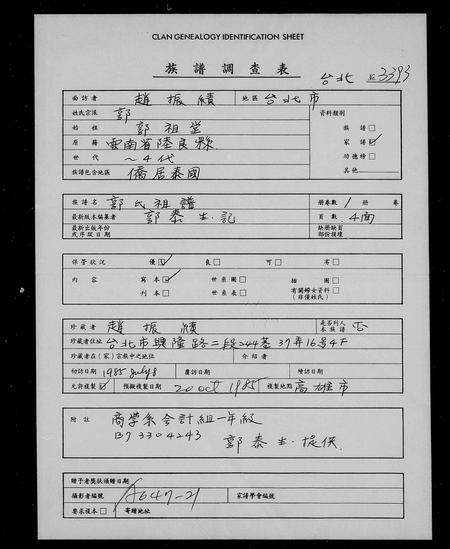 CLAN GENEALOGY IDENTIFICATION SHEET
族譜調查表
台北 № 3393
面訪者 趙振績 地區 台北市
姓氏宗派 郭 資料類別
始祖 郭祖堂 族譜□
原籍 雲南省陸良縣 家譜☑
世代 ～4代 功德榜□
族譜包含地區 僑居泰國 其他
族譜名 郭氏祖譜 冊卷數 1 冊 卷
最新版本編纂者 郭泰生.記 頁數 4面
最新出版年份或序跋日期 缺冊缺頁部份損壞
保管狀況 優☑ 良□ 可□ 劣□
內容 寫本☑ 世系圖□ 插圖□
刊本□ 世系表□ 有關婦女資料□(非僅姓氏)
珍藏者 趙振績 是否列入本族譜 否
珍藏者住址 台北市興隆路二段244巷37弄16號4F
珍藏者在(家)宗族中之地位 介紹者
初訪日期 1985 July 8 覆訪日期 續訪日期
允許複製☑ 預擬複製日期 20 oct 1985 複製地點 高雄市
附註 商學系會計組一年級
B7 3304243
郭泰生.提供.
贈予者獎狀頒贈日期
攝影者編號 A647-21 家譜學會編號
要求複本□ 寄贈地址